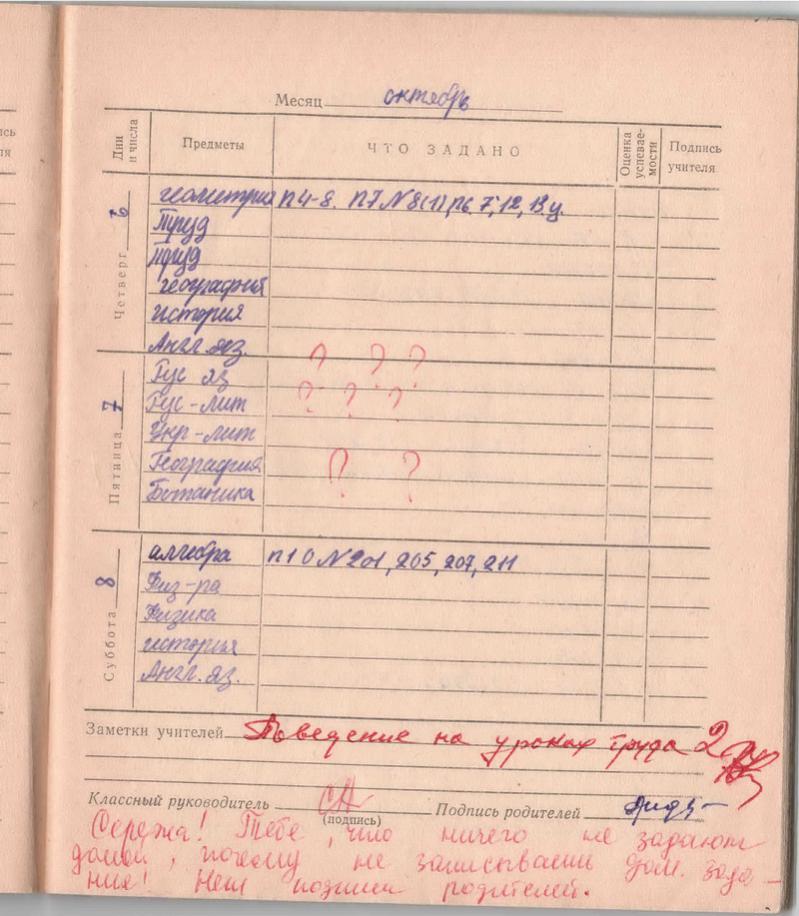 Месяц октябрь
Дни и числа Предметы ЧТО ЗАДАНО Оценка успеваемости Подпись учителя
Четверг 6
геометрия п4-8. п7 №8(1),
Труд
труд
география
история
Англ. яз.
? ? ?
Пятница 7
Рус яз
? ? ?
Рус-лит
Укр-лит
География ? ?
Ботаника
Суббота 8
алгебра п10 №201, 205, 207, 211
Физ-ра
Физика
история
Англ. яз.
Заметки учителей Поведение на уроках труда 2
Классный руководитель Подпись родителей
(подпись)
Сережа! Тебе, что ничего не задают
домой, почему не записываешь дом. зада-
ние! Нет подписи родителей.